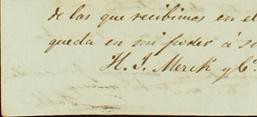 de las que recibimos en el
queda en mi poder á
H. J. Merck y Cª.